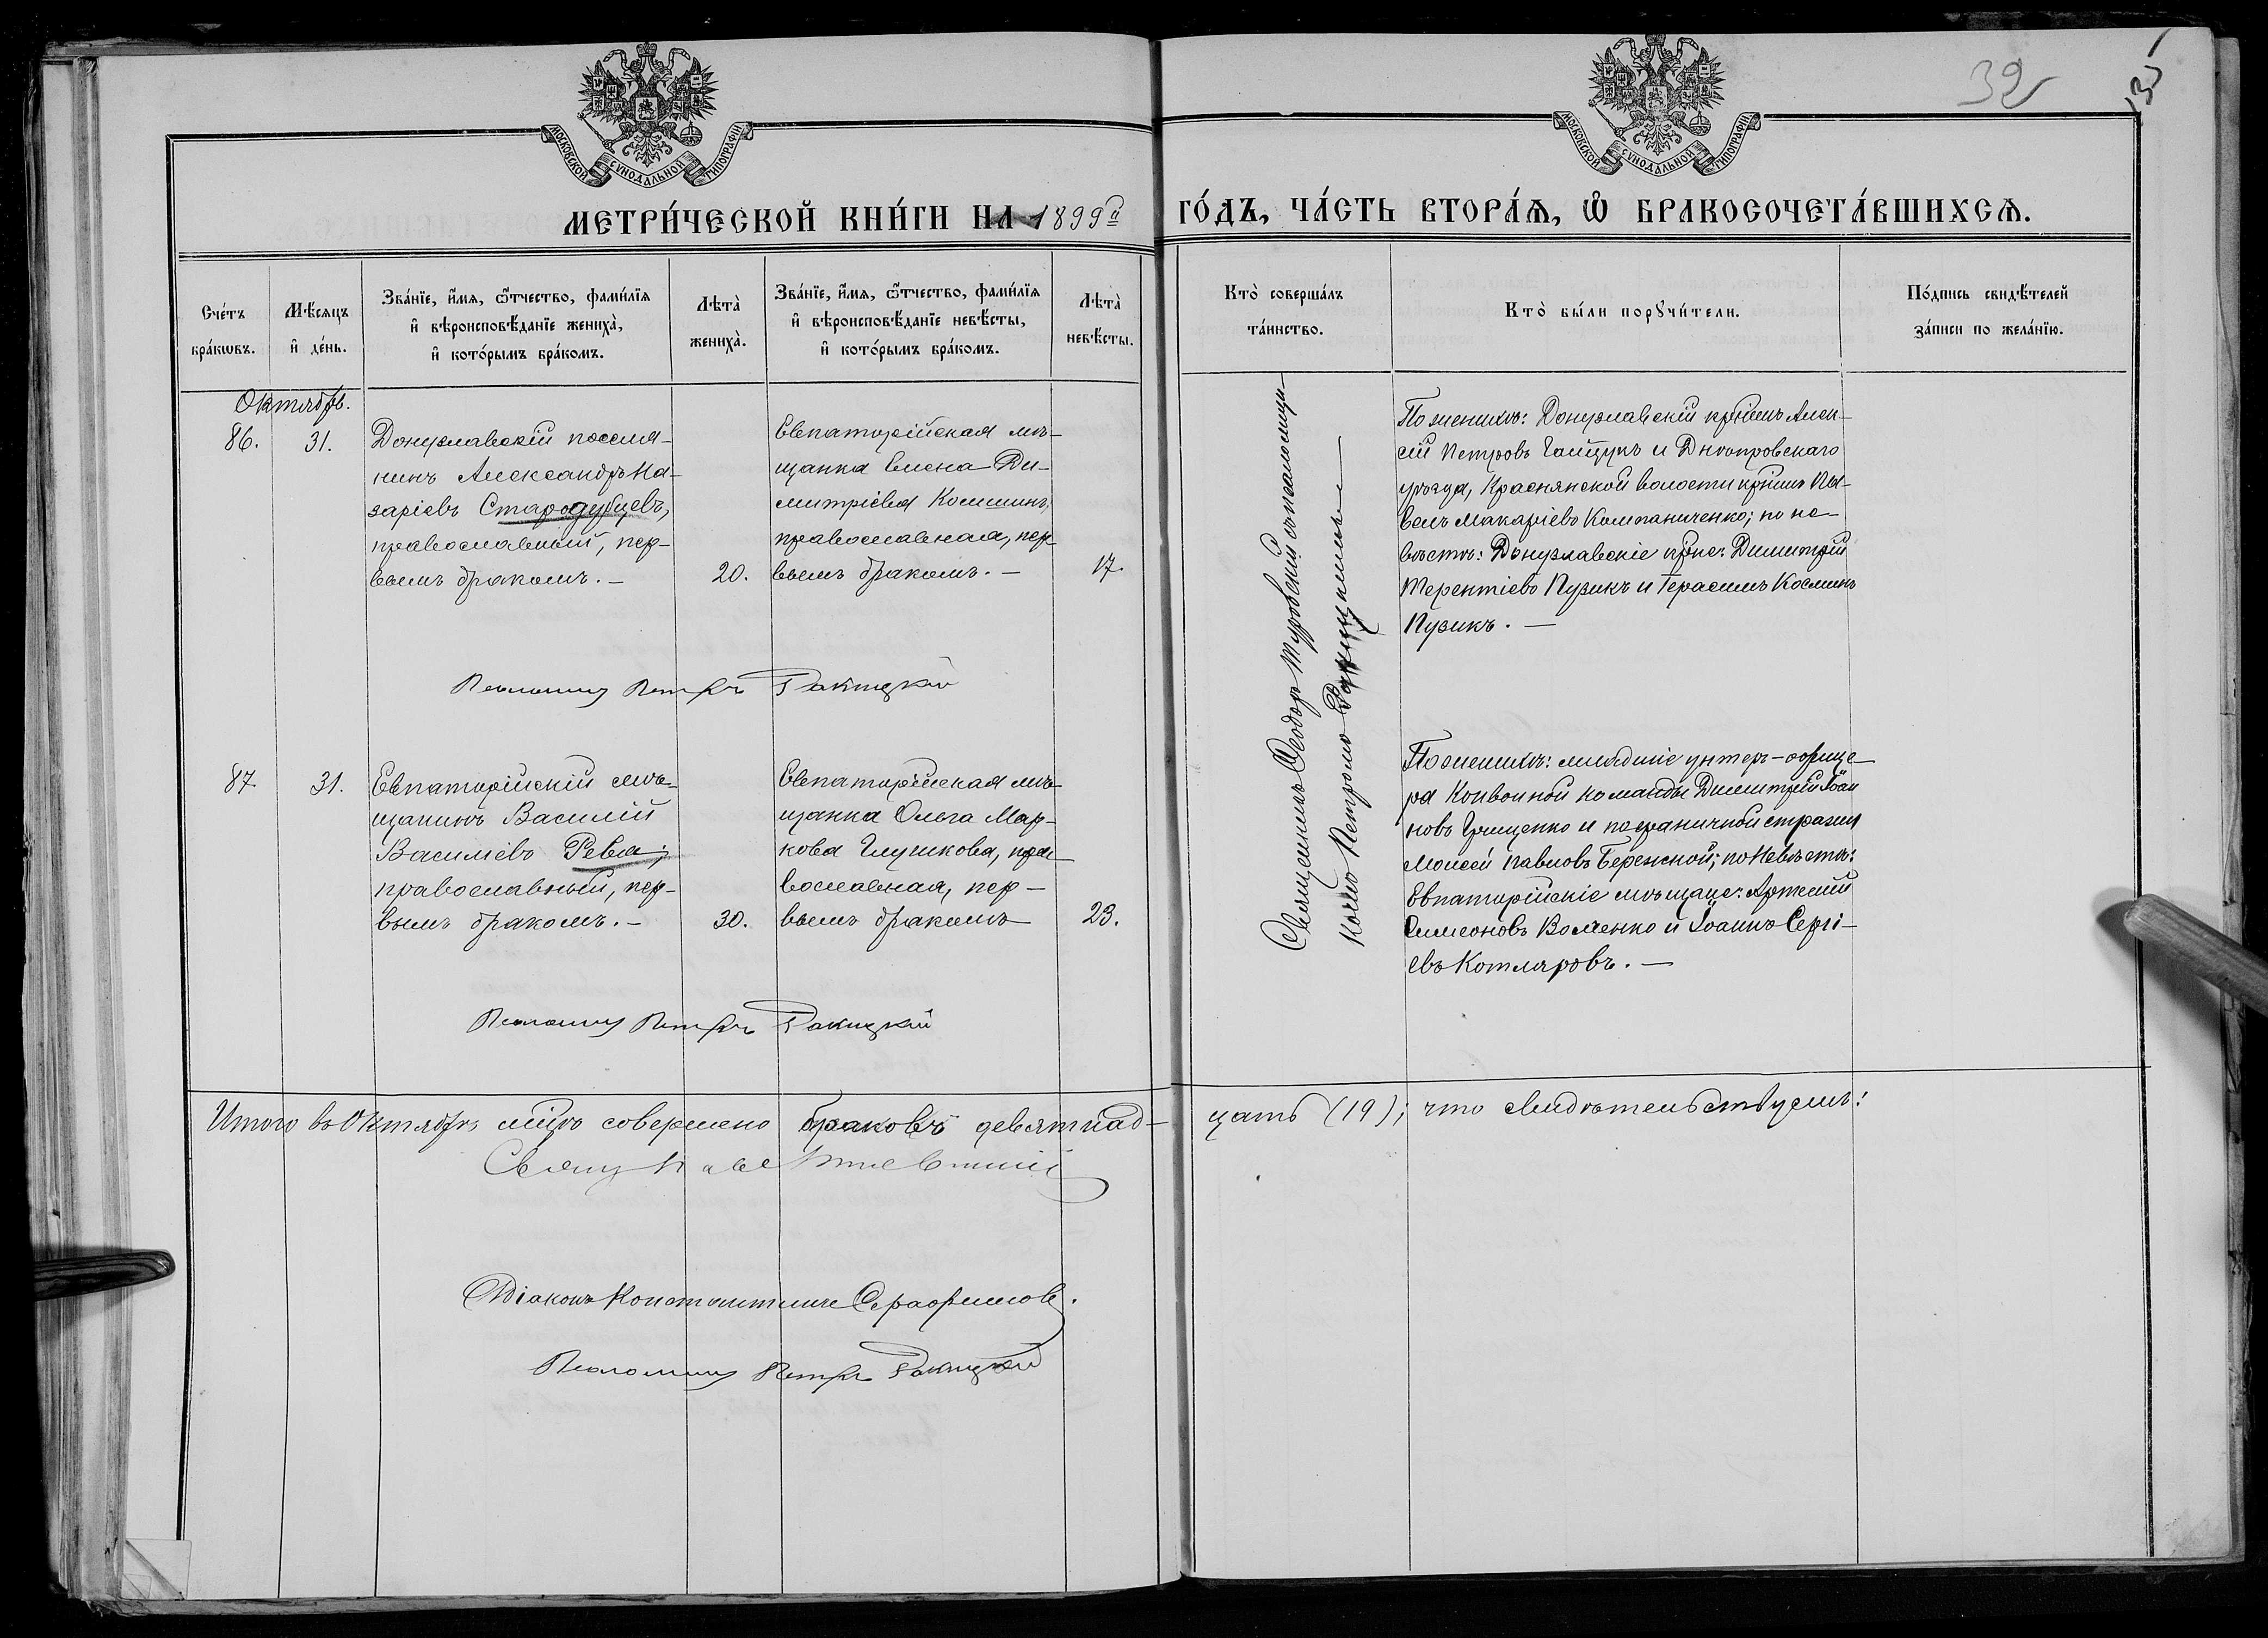 32
МОСКОВСКОЙ СѴНОДАЛЬНОЙ ТИПОГРАФІИ
МОСКОВСКОЙ СѴНОДАЛЬНОЙ ТИПОГРАФІИ
МЕТРИ́ЧЕСКОЙ КНИ́ГИ НА 1899й ГО́ДЪ, ЧА́СТЬ ВТОРА́Ѧ, Ѽ БРАКОСОЧЕТА́ВШИХСѦ.
Сче́тъ
бра́кѡвъ.
Мѣ́сяцъ
и҆ де́нь.
Зва́нїе, и҆́мя, ѻ҆́тчество, фами́лїя
и҆ вѣроисповѣ́данїе жениха̀,
и҆ кото́рымъ бра́комъ.
Лѣта̀
жениха̀.
Зва́нїе, и҆́мя, ѻ҆́тчество, фами́лїя
и҆ вѣроисповѣ́данїе невѣ́сты,
и҆ кото́рымъ бра́комъ.
Лѣта̀
невѣ́сты.
Кто̀ соверша́лъ
та́инство.
Кто̀ бы́ли порꙋчи́тели.
По́дпись свидѣ́телей
за́писи по жела́нїю.
Октябрь.
86.
31.
Донузлавскій поселя-
нинъ Александръ На-
заріевъ Стародубцевъ,
православный, пер-
вымъ бракомъ. —
20.
Евпаторійская мѣ-
щанка Елена Ди-
митріева
православная, пер-
вымъ бракомъ. —
17.
Священникъ Феодоръ Туровскій съ псаломщи-
комъ Петромъ Ракицкимъ
По женихѣ: Донузлавскій Алек-
сій Петровъ и Днѣпровскаго
уѣзда, Краснянской волости Па-
велъ Макаріевъ Компаниченко; по не-
вѣстѣ: Донузлавскіе Димитрій
Терентіевъ Пузикъ и Герасимъ Косминъ
Пузикъ. —
Псаломщ Петръ Ракицкій
87
31.
Евпаторійскій мѣ-
щанинъ Василій
Васильевъ Рева,
православный, пер-
вымъ бракомъ. —
30.
Евпаторійская мѣ-
щанка Ольга Мар-
кова Глушкова, пра-
вославная, пер-
вымъ бракомъ
23.
По женихѣ: младшіе унтеръ-офице-
ра Конвойной команды Димитрій Іоан
новъ Грищенко и пограничной стражи
Моисей Павловъ Бережной; по Невѣстѣ:
Евпаторійскіе мѣщане: Артемій
Симеоновъ и Іоаннъ Сергі-
евъ Котляровъ. —
Псаломщ Петръ Ракицкій
Итого въ Октябрѣ мѣцѣ совершено браковъ девятнад-
цать (19); что свидѣтельствуемъ:
Свящ
Діаконъ Константинъ Серафимовъ.
Псаломщ Петръ Ракицкій